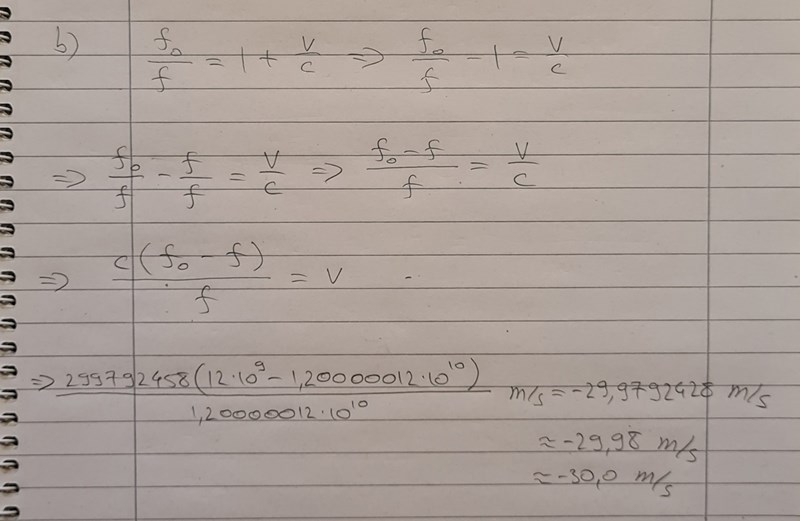 b) f₀/f = 1 + v/c ⇒ f₀/f - 1 = v/c
⇒ f₀/f - f/f = v/c ⇒ (f₀ - f)/f = v/c
⇒ c(f₀ - f)/f = v
⇒ 299792458(12·10⁹ - 1,20000012·10¹⁰)/1,20000012·10¹⁰ m/s = -29,9792428 m/s
≈ -29,98 m/s
≈ -30,0 m/s